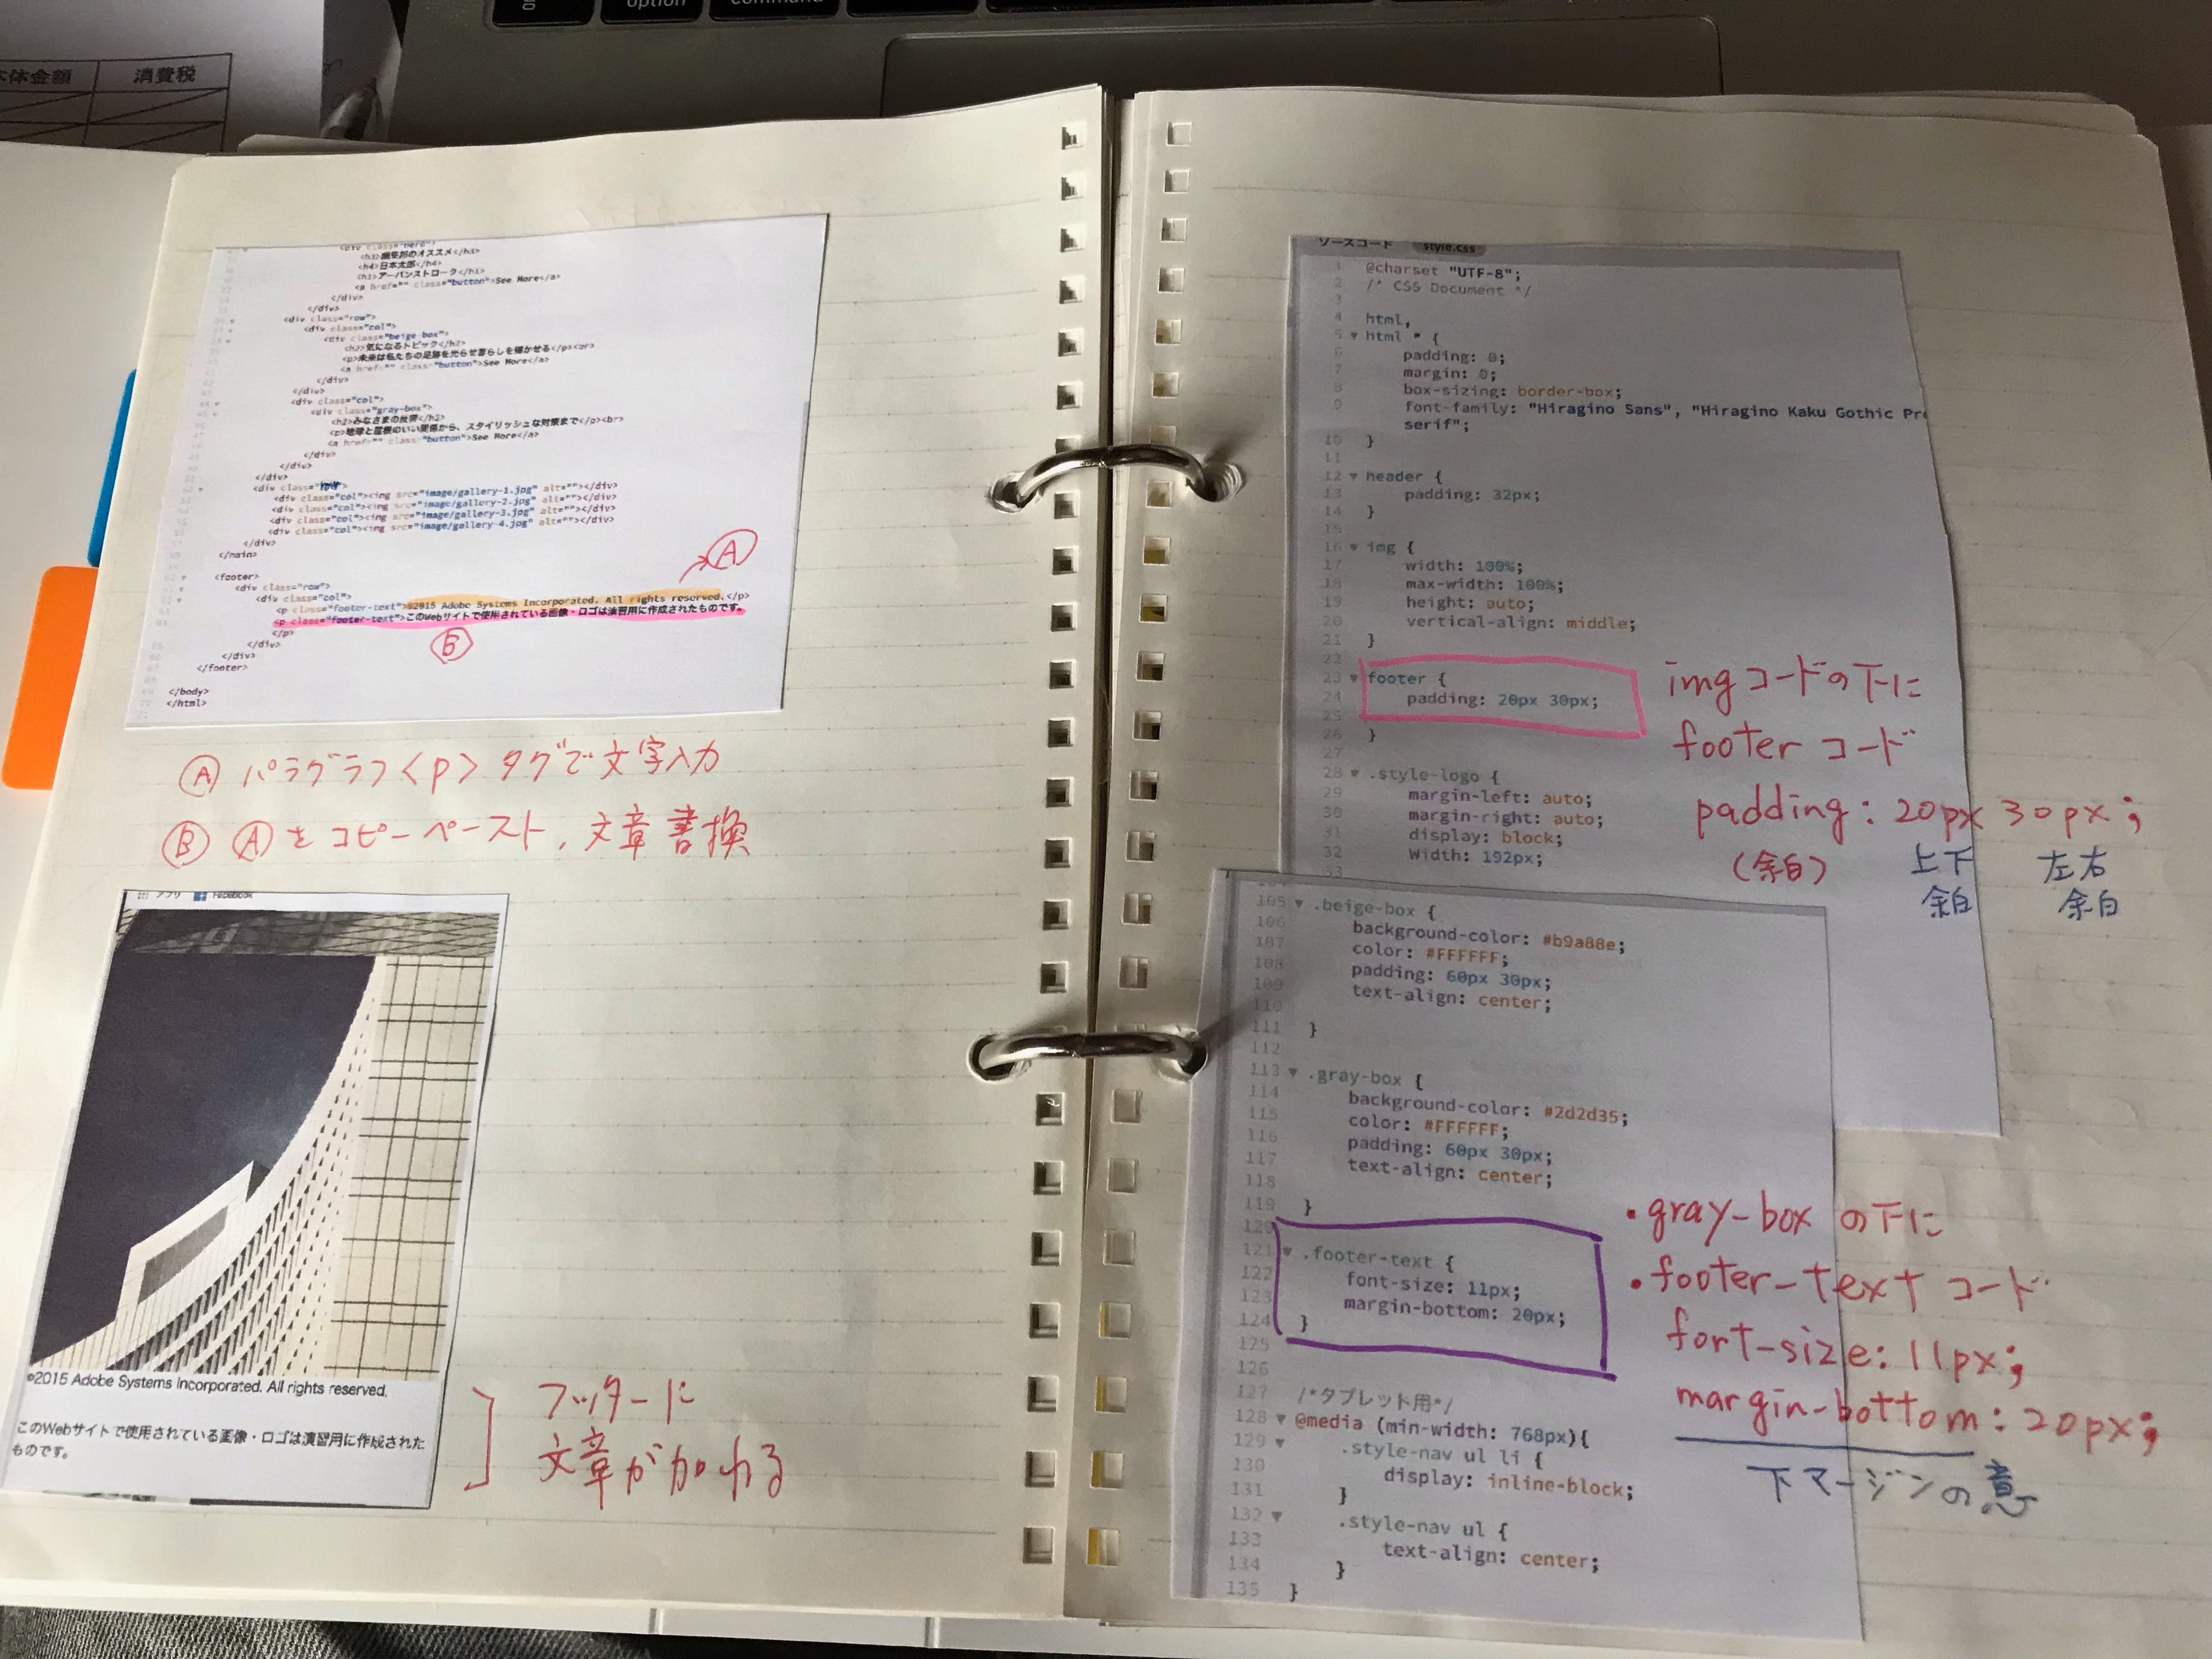 option
command
本体金額 消費税
<div class="hero">
<h3>編集部のオススメ</h3>
<h4>日本太郎</h4>
<h1>アーバンストローク</h1>
<a href="" class="button">See More</a>
</div>
</div>
<div class="row">
<div class="col">
<div class="beige-box">
<h2>気になるトピック</h2>
<p>未来は私たちの足跡を光らせ暮らしを輝かせる</p><br>
<a href="" class="button">See More</a>
</div>
</div>
<div class="col">
<div class="gray-box">
<h2>みなさまの反響</h2>
<p>地球と屋根のいい関係から、スタイリッシュな対策まで</p><br>
<a href="" class="button">See More</a>
</div>
</div>
</div>
<div class="row">
<div class="col"><img src="image/gallery-1.jpg" alt=""></div>
<div class="col"><img src="image/gallery-2.jpg" alt=""></div>
<div class="col"><img src="image/gallery-3.jpg" alt=""></div>
<div class="col"><img src="image/gallery-4.jpg" alt=""></div>
</div>
</main>
Ⓐ
<footer>
<div class="row">
<div class="col">
<p class="footer-text">©2015 Adobe Systems Incorporated. All rights reserved.</p>
<p class="footer-text">このWebサイトで使用されている画像・ロゴは演習用に作成されたものです。
</p>
Ⓑ
</div>
</div>
</footer>
</body>
</html>
Ⓐ パラグラフ<p> タグで文字入力
Ⓑ Ⓐをコピーペースト、文章書換
アプリ Facebook
©2015 Adobe Systems Incorporated. All rights reserved.
このWebサイトで使用されている画像・ロゴは演習用に作成された
ものです。
フッターに
文章が加わる
ソースコード style.css
1 @charset "UTF-8";
2 /* CSS Document */
3
4 html,
5 html * {
6 padding: 0;
7 margin: 0;
8 box-sizing: border-box;
9 font-family: "Hiragino Sans", "Hiragino Kaku Gothic Pr
serif";
10 }
11
12 header {
13 padding: 32px;
14 }
15
16 img {
17 width: 100%;
18 max-width: 100%;
19 height: auto;
20 vertical-align: middle;
21 }
22
23 footer {
24 padding: 20px 30px;
25
26 }
27
28 .style-logo {
29 margin-left: auto;
30 margin-right: auto;
31 display: block;
32 Width: 192px;
33
imgコードの下に
footer コード
padding : 20px 30px ;
(余白) 上下 左右
余白 余白
105 .beige-box {
106 background-color: #b9a88e;
107 color: #FFFFFF;
108 padding: 60px 30px;
109 text-align: center;
110
111 }
112
113 .gray-box {
114 background-color: #2d2d35;
115 color: #FFFFFF;
116 padding: 60px 30px;
117 text-align: center;
118
119 }
120
121 .footer-text {
122 font-size: 11px;
123 margin-bottom: 20px;
124 }
125
126
127 /*タブレット用*/
128 @media (min-width: 768px){
129 .style-nav ul li {
130 display: inline-block;
131 }
132 .style-nav ul {
133 text-align: center;
134 }
135 }
.gray-box の下に
.footer-text コード
font-size: 11px;
margin-bottom : 20px;
下マージンの意